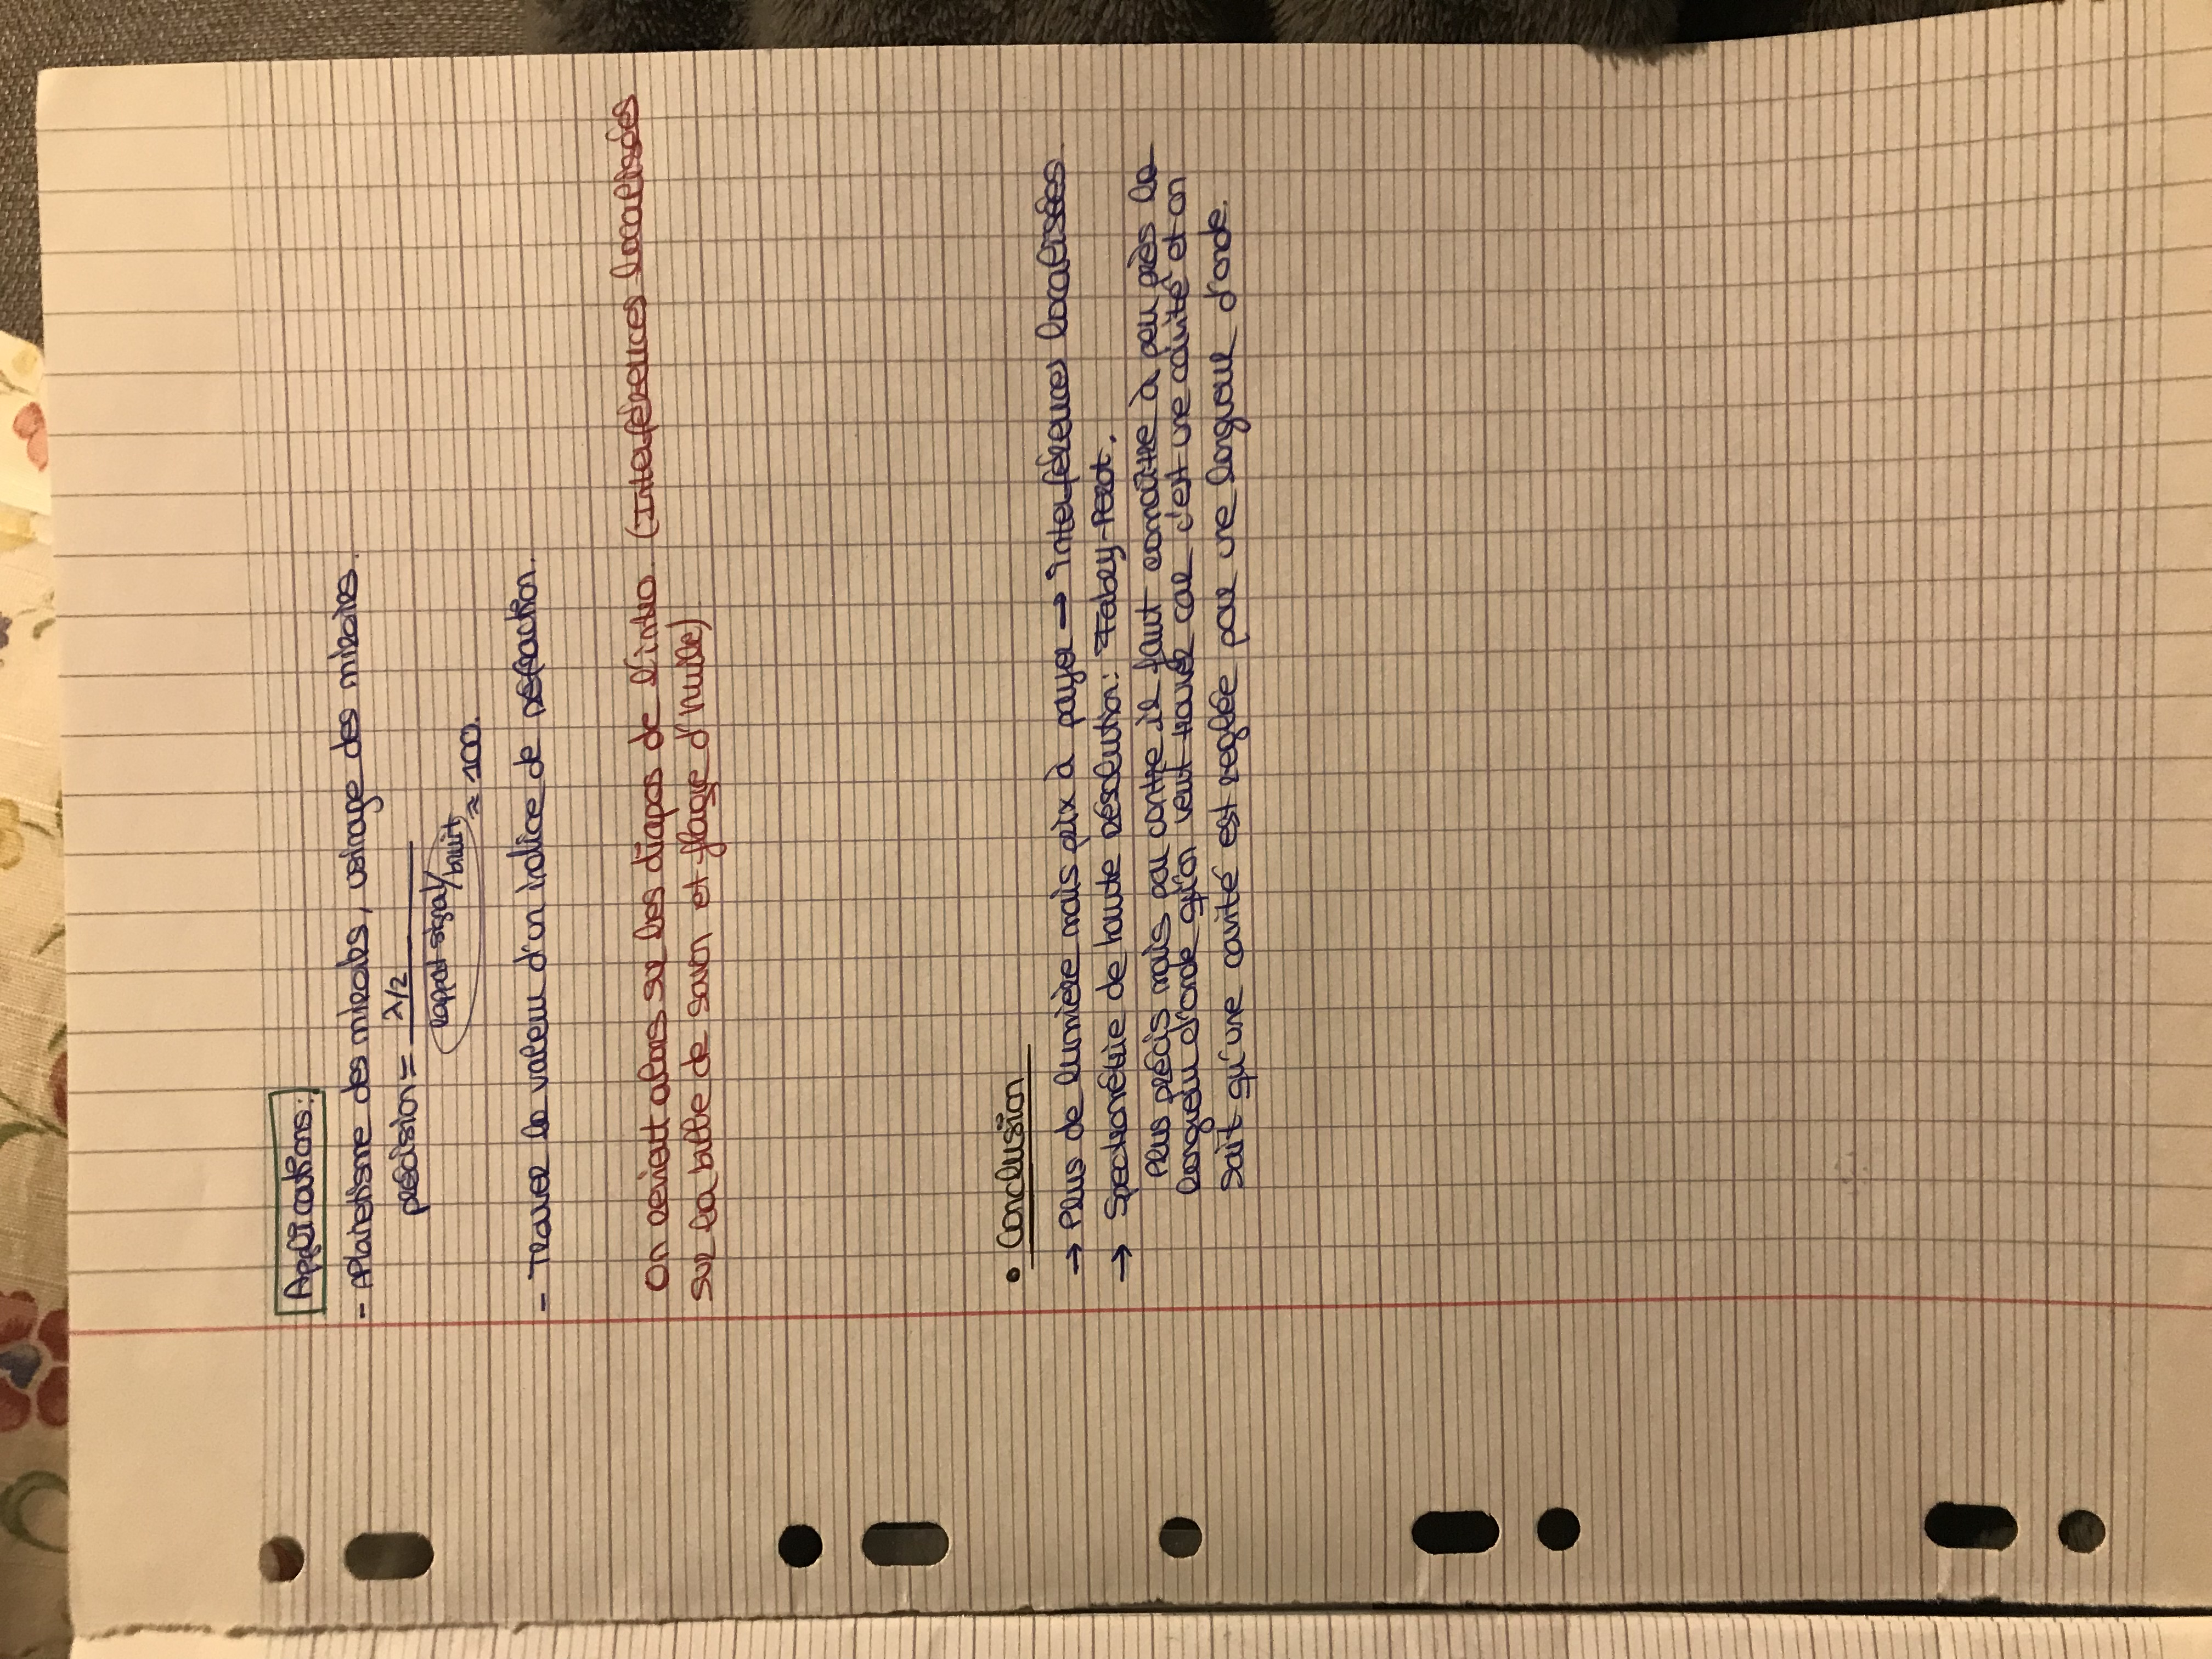 Applications:
- Aplanétisme des miroirs, usinage des miroirs.
précision = λ/2
rapport signal/bruit ≈ 100.
- Trouver la valeur d'un indice de réfraction.
On revient alors sur les diapos de l'intro. (Interférences localisées
sur la bulle de savon et flaque d'huile)
• Conclusion
→ Plus de lumière mais prix à payer → interférences localisées
→ Spectrométrie de haute résolution: Fabry-Perot.
Plus précis mais par contre il faut connaître à peu près la
longueur d'onde qu'on veut trouver car c'est une cavité et on
sait qu'une cavité est reglée pour une longueur d'onde.